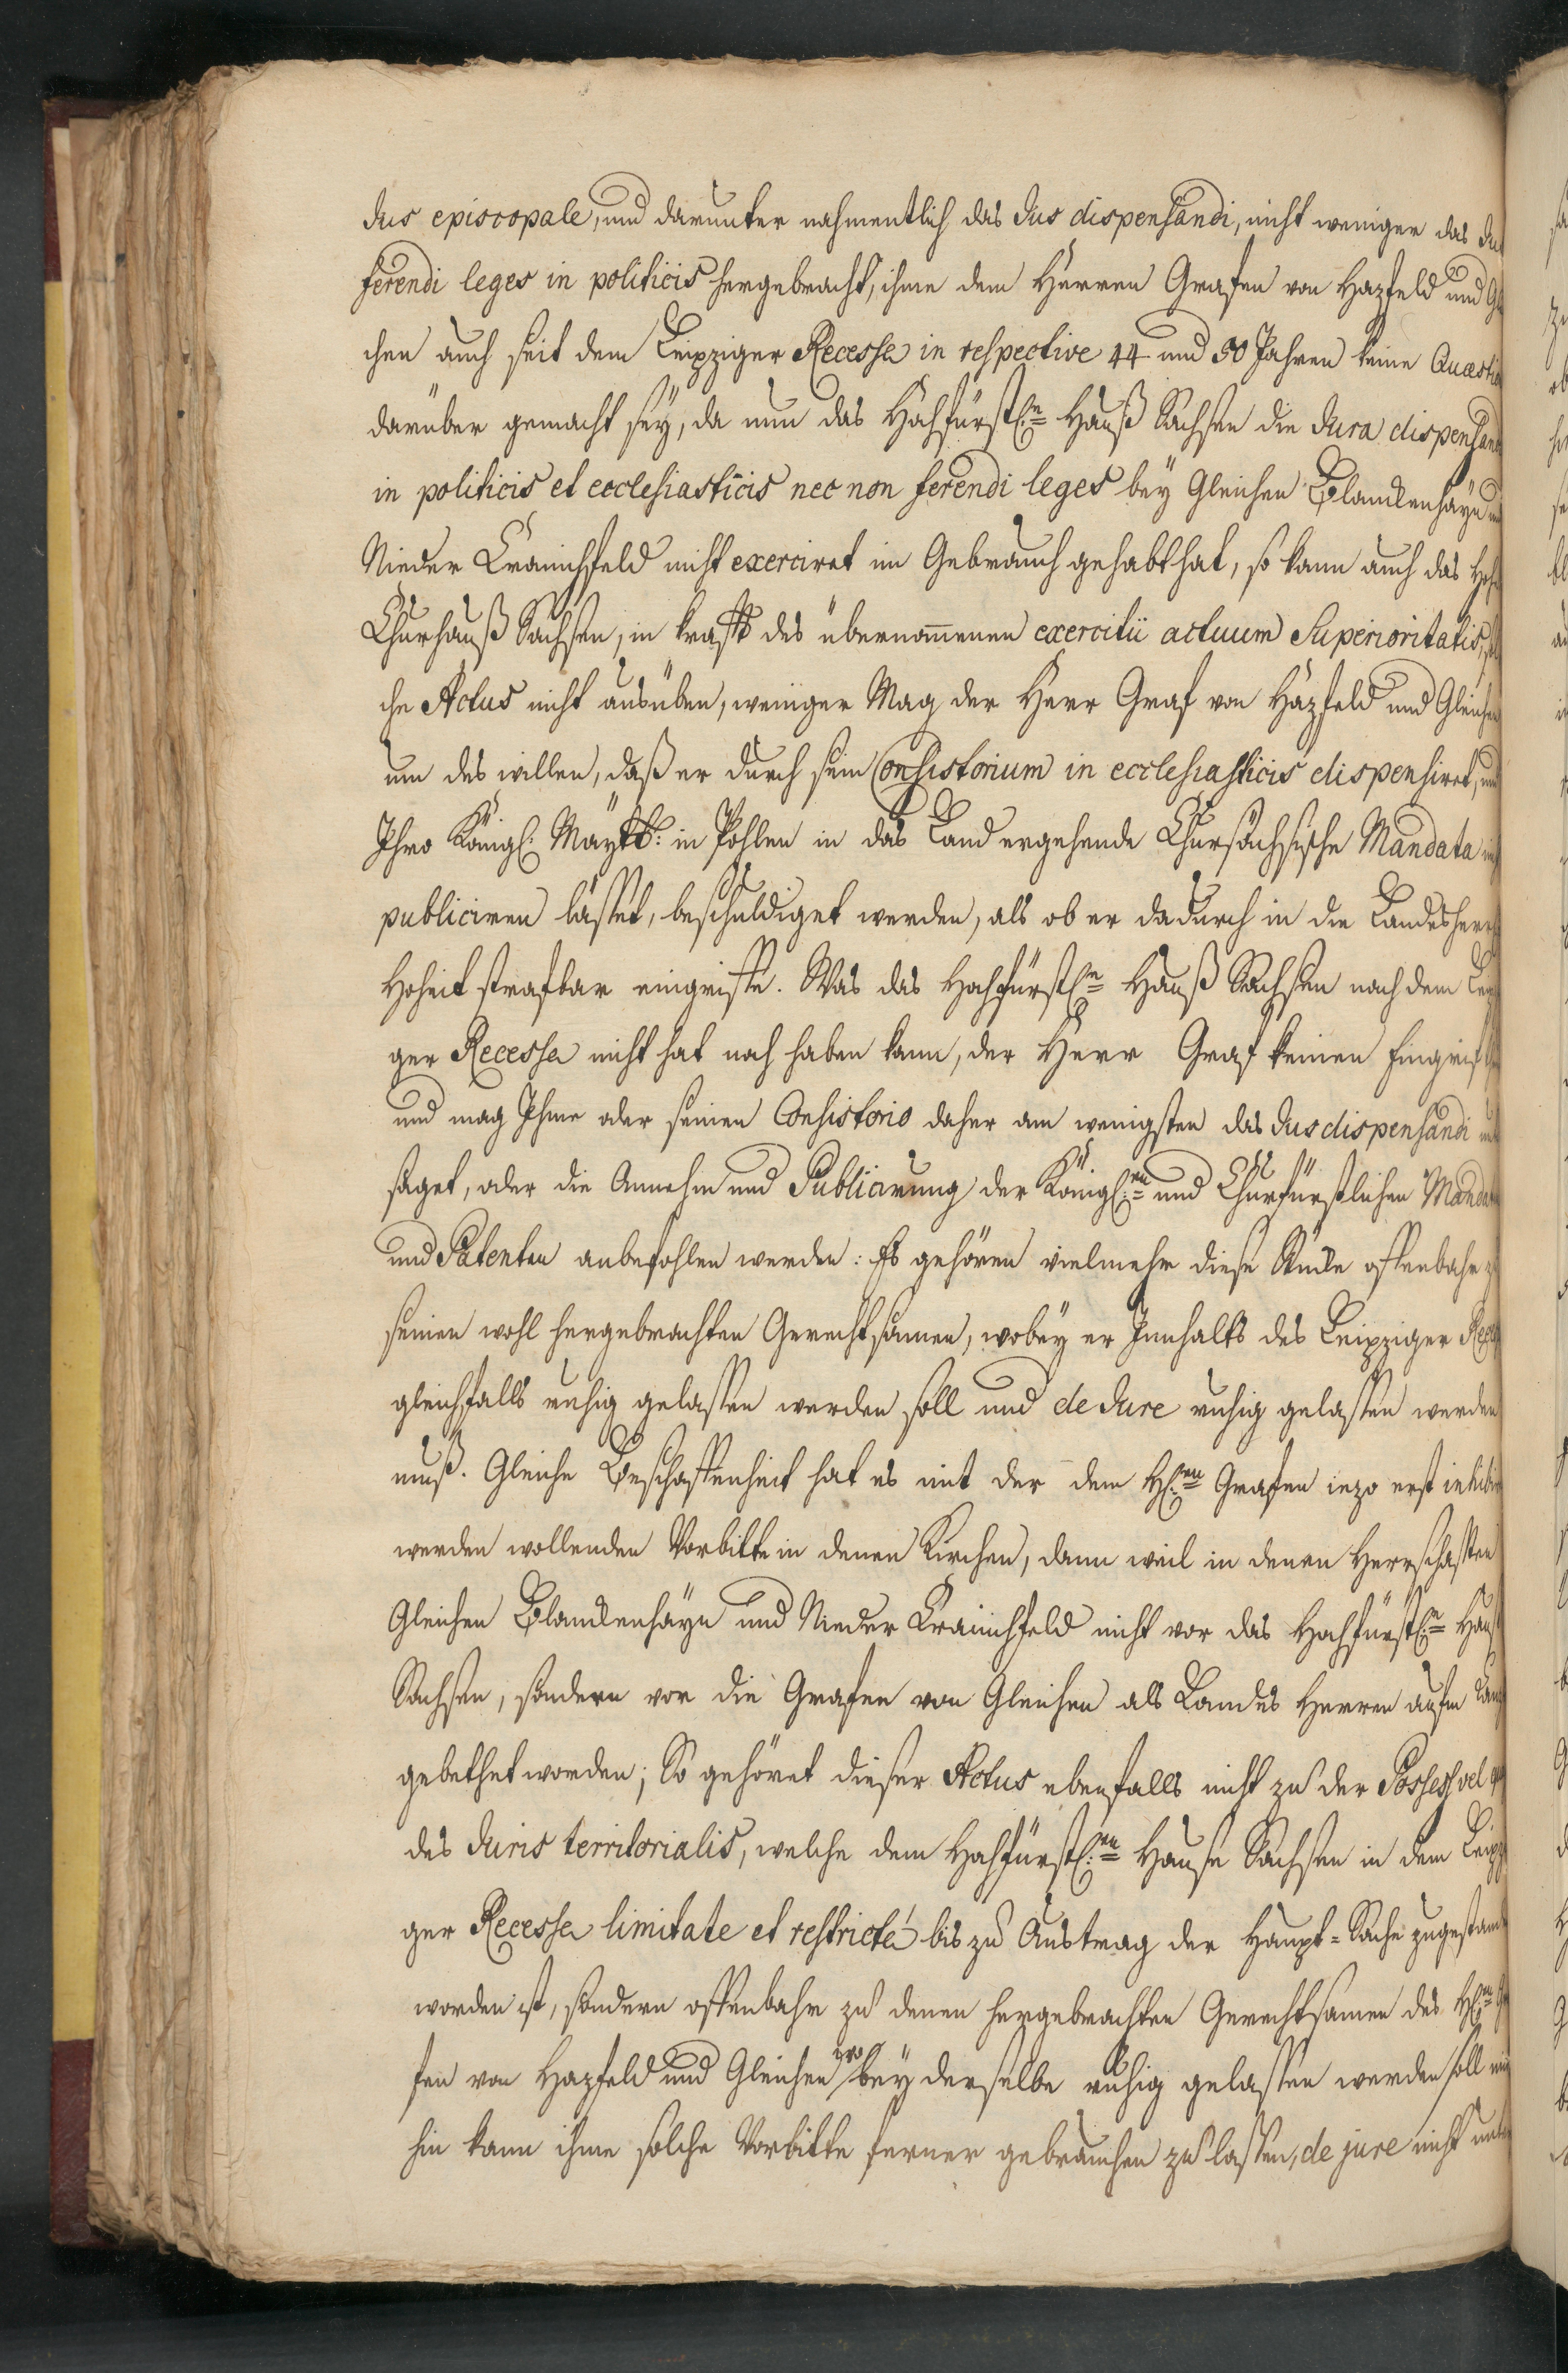 Jus episcopale, und darunter nahmentlich das Jus dispensandi, nicht weniger das Jus
ferendi leges in politicis hergebracht, ihme dem Herren Grafen von Hazfeld und Glei
chen auch seit dem Leipziger Recesse in respective 44 und 50 Jahren keine Quaestio
darüber gemacht sey, da nun das Hochfürstl:e Hauß Sachsen die Jura dispensandi
in politicis et ecclesiasticis nec non ferendi leges bey Gleichen Blanckenhayn und
Nieder Cranichfeld nicht exerciret im Gebrauch gehabt hat, so kann auch das Hohe
Churhauß Sachsen, in krafft des übernommenen exercitii actuum Superioritatis, sol
che Actus nicht ausüben, weniger Mag der Herr Graf von Hazfeld und Gleichen
um des willen, daß er durch sein Consistorium in ecclesiasticis dispensiret, und
Ihro Königl: Maytt: in Pohlen in das Land ergehende Chursächsische Mandata nicht
publiciren lässet, beschuldiget werden, als ob er dadurch in die Landesherrl
Hoheit strafbar eingriffe. Was das Hochfürstl:e Hauß Sachsen nach dem Leipzi
ger Recesse nicht hat noch haben kann, der Herr Graf keinen Eingriff
und mag Ihme oder seinen Consistorio daher am wenigsten das Jus dispensandi unter
saget, oder die Annehm und Publicirung der Königl:en und Churfürstlichen Mandaten
und Patenten anbefohlen werden: Es gehören vielmehr diese Stücke offenbahr zu
seinen wohl hergebrachten Gerechtsamen, wobey er Innhalts des Leipziger Recess
gleichfalls ruhig gelassen werden soll und de Jure ruhig gelassen werden
muß. Gleiche Beschaffenheit hat es mit der dem H:en Grafen iezo erst inhibiret
werden wollenden Vorbitte in denen Kirchen, dann weil in denen Herrschafften
Gleichen Blanckenhayn und Nieder Cranichfeld nicht vor das Hochfürstl:e Hauß
Sachsen, sondern vor die Grafen von Gleichen als Landes Herren aufm Lande
gebethet worden; So gehöret dieser Actus ebenfalls nicht zu der Possess vel quasi
des Juris territorialis, welche dem Hochfürstl:en Hause Sachsen in dem Leipzi
ger Recesse limitate et restricté bis zu Austrag der Haupt-Sache zugestanden
worden ist, sondern offenbahr zu denen hergebrachten Gerechtsamen des H:en Gra
fen von Hazfeld und Gleichen wobey derselbe ruhig gelassen werden soll mit
hin kann ihme solche Vorbitte ferner gebrauchen zu lassen, de jure nicht unter